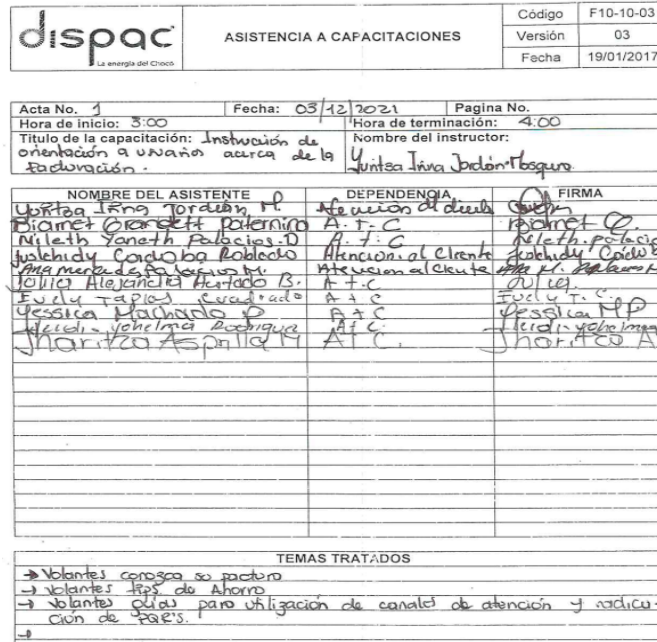 dispac
La energía del Chocó
ASISTENCIA A CAPACITACIONES
Código F10-10-03
Versión 03
Fecha 19/01/2017
Acta No. 1 Fecha: 03/12/2021 Pagina No.
Hora de inicio: 3:00 Hora de terminación: 4:00
Titulo de la capacitación: Instrucción de orientación a usuarios acerca de la facturación.
Nombre del instructor: Yuritsa Irina Jordán Mosquera
NOMBRE DEL ASISTENTE DEPENDENCIA FIRMA
Yuritsa Irina Jordán M. Atención al cliente
Biamet Grandett Paternino A. T. C Biamet G.
Nileth Yaneth Palacios D A. T. C Nileth. Palacio
Juslehidy Cordoba Robledo Atención al Cliente Juslehidy Cordob
Ana mercedes Palacios M. Atencion al cliente Ana M. Palacios M
Julia Alejandra Hurtado B. A + C Julia
Evely Tapias Cuadrado A + C Evely T. C.
Yessica Machado P A + C Yessica M P
Heidi Yohelma Rodriguez A + C Heidi Yohelma
Sharitza Asprilla M A + C. Sharitza A
TEMAS TRATADOS
→ Volantes conozca su factura
→ Volantes tips de Ahorro
→ Volantes guias para utilización de canales de atención y radica-
ción de PQR's.
→